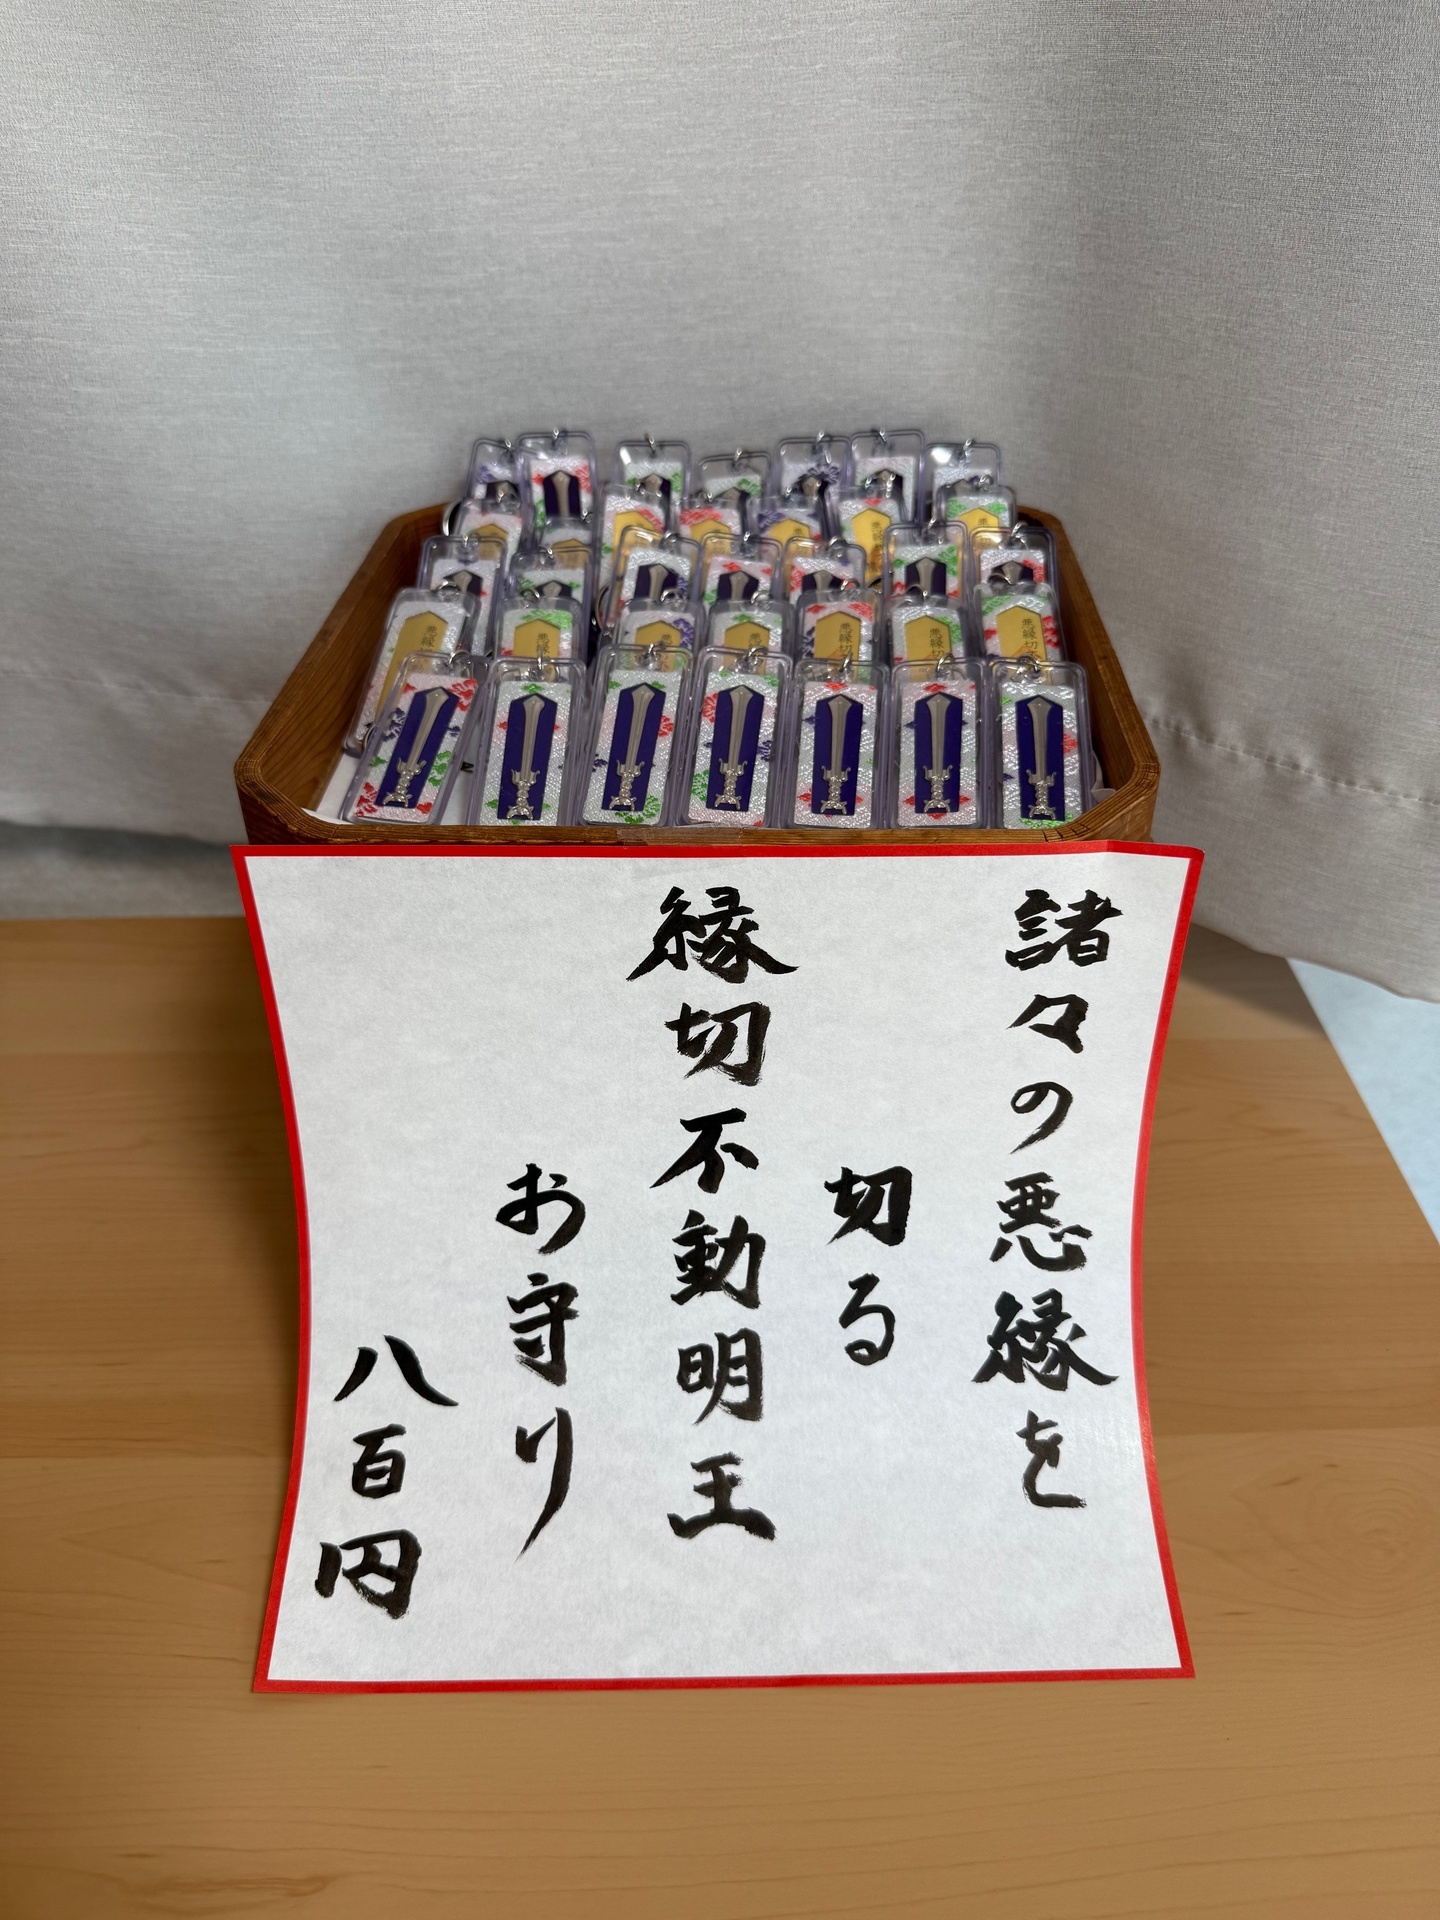 諸々の悪縁を
切る
縁切不動明王
お守り
八百円